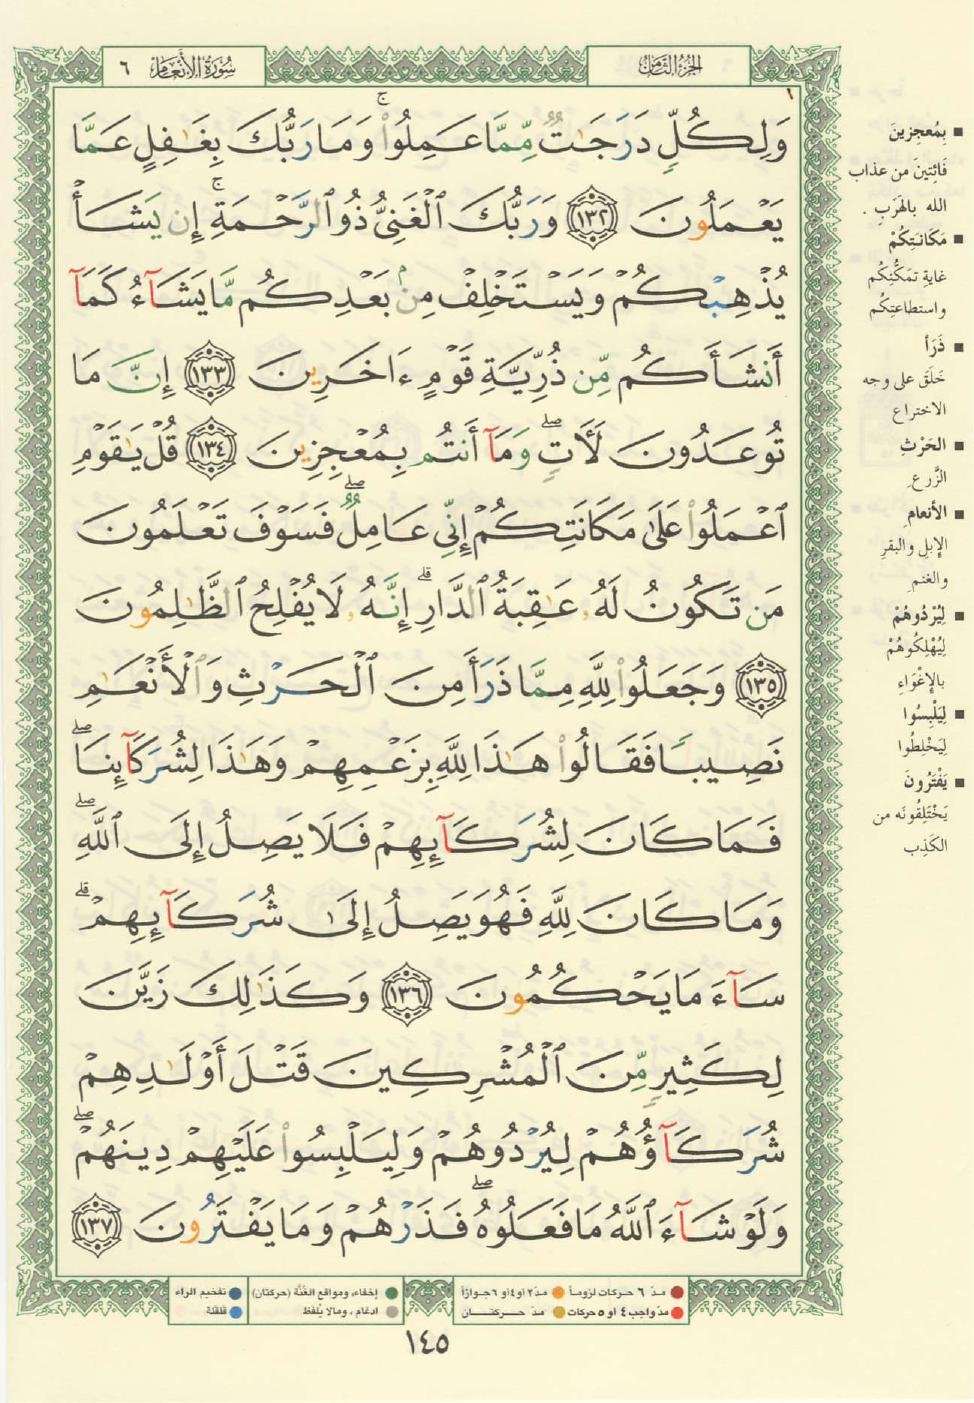 سُورَةُ الأَنْعَامِ ٦
الجُزءُ الثَّامِنُ
وَلِكُلٍّ دَرَجَٰتٌ مِّمَّا عَمِلُوا۟ ۚ وَمَا رَبُّكَ بِغَٰفِلٍ عَمَّا
يَعْمَلُونَ ١٣٢ وَرَبُّكَ ٱلْغَنِىُّ ذُو ٱلرَّحْمَةِ ۚ إِن يَشَأْ
يُذْهِبْكُمْ وَيَسْتَخْلِفْ مِنۢ بَعْدِكُم مَّا يَشَآءُ كَمَآ
أَنشَأَكُم مِّن ذُرِّيَّةِ قَوْمٍ ءَاخَرِينَ ١٣٣ إِنَّ مَا
تُوعَدُونَ لَءَاتٍ ۖ وَمَآ أَنتُم بِمُعْجِزِينَ ١٣٤ قُلْ يَٰقَوْمِ
ٱعْمَلُوا۟ عَلَىٰ مَكَانَتِكُمْ إِنِّى عَامِلٌ ۖ فَسَوْفَ تَعْلَمُونَ
مَن تَكُونُ لَهُۥ عَٰقِبَةُ ٱلدَّارِ ۗ إِنَّهُۥ لَا يُفْلِحُ ٱلظَّٰلِمُونَ
١٣٥ وَجَعَلُوا۟ لِلَّهِ مِمَّا ذَرَأَ مِنَ ٱلْحَرْثِ وَٱلْأَنْعَٰمِ
نَصِيبًا فَقَالُوا۟ هَٰذَا لِلَّهِ بِزَعْمِهِمْ وَهَٰذَا لِشُرَكَآئِنَا ۖ
فَمَا كَانَ لِشُرَكَآئِهِمْ فَلَا يَصِلُ إِلَى ٱللَّهِ ۖ
وَمَا كَانَ لِلَّهِ فَهُوَ يَصِلُ إِلَىٰ شُرَكَآئِهِمْ ۗ
سَآءَ مَا يَحْكُمُونَ ١٣٦ وَكَذَٰلِكَ زَيَّنَ
لِكَثِيرٍ مِّنَ ٱلْمُشْرِكِينَ قَتْلَ أَوْلَٰدِهِمْ
شُرَكَآؤُهُمْ لِيُرْدُوهُمْ وَلِيَلْبِسُوا۟ عَلَيْهِمْ دِينَهُمْ ۖ
وَلَوْ شَآءَ ٱللَّهُ مَا فَعَلُوهُ ۖ فَذَرْهُمْ وَمَا يَفْتَرُونَ ١٣٧
بِمُعجِزِينَ
فَائِتِينَ من عذاب
الله بالهَرَبِ .
مَكَانَتِكُمْ
غاية تمَكُّنِكُم
واستطاعتِكُم
ذَرَأَ
خَلَقَ على وجه
الاختراع
الحَرْثِ
الزَّرع
الأنعام
الإبلِ والبقرِ
والغنمِ
لِيُرْدُوهُمْ
لِيُهْلِكُوهُمْ
بالإِغْوَاءِ
لِيَلْبِسُوا
لِيَخْلِطُوا
يَفْتَرُونَ
يَخْتَلِقُونَه من
الكَذِب
مدّ ٦ حركات لزوماً
مدّ ٢ او ٤ او ٦ جوازاً
مدّ واجب ٤ او ٥ حركات
مدّ حــركتــان
إخفاء، ومواقع الغُنَّة (حركتان)
ادغام ، ومالا يُلفظ
تفخيم الراء
قلقلة
١٤٥